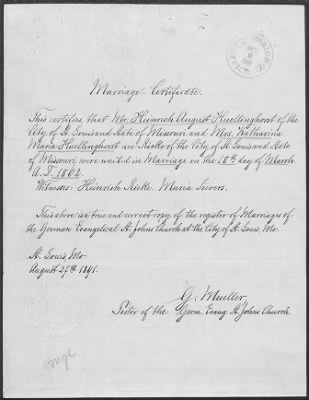 Marriage Certificate.
This certifies that Mr. Heinrich August Huellinghorst of the
City of St. Louis and State of Missouri and Mrs. Katharina
Maria Huellinghorst nee Rieke of the City of St. Louis and State
of Missouri were united in Marriage on the 18th day of March
A.D. 1862.
Witnesses: Heinrich Rieke. Maria Sievers.
This above is a true and correct copy of the register of Marriages of the
German Evangelical St. Johns Church at the City of St. Louis Mo.
St. Louis, Mo.
August 27th 1891.
G. Mueller,
Pastor of the Germ. Evang. St. Johns Church.